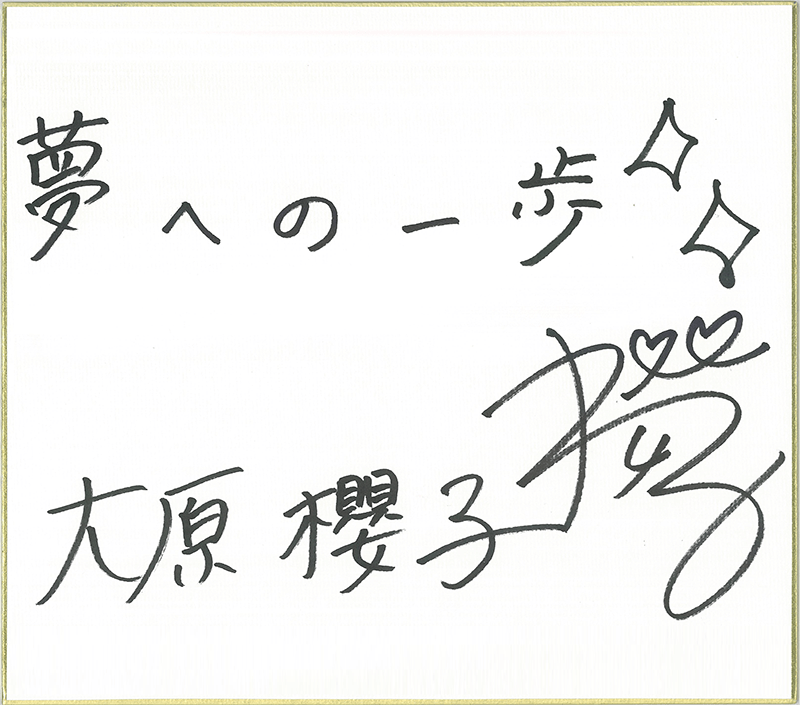 夢への一歩
大原櫻子